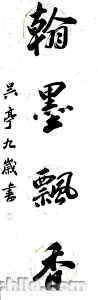 翰墨飄香
吴亭九歲書